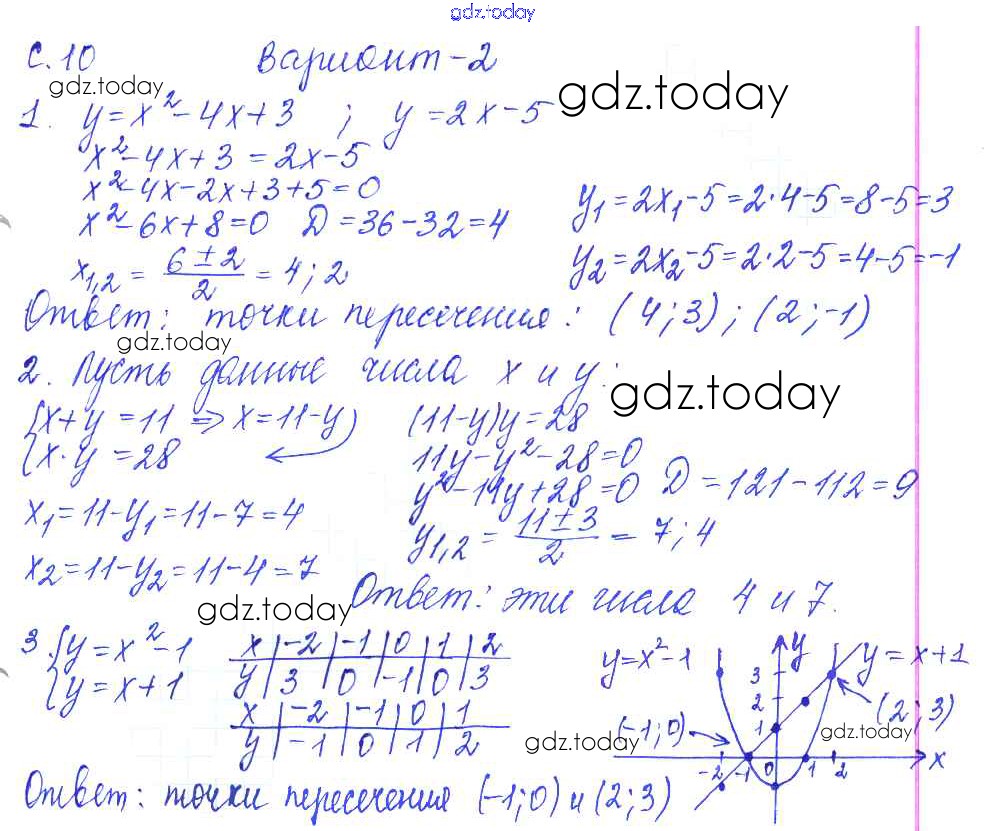 gdz.today
С.10 Вариант-2
gdz.today gdz.today
1. y=x²-4x+3 ; y=2x-5
x²-4x+3=2x-5
x²-4x-2x+3+5=0
x²-6x+8=0 D=36-32=4
y₁=2x₁-5=2·4-5=8-5=3
x₁,₂ = (6±2)/2 = 4; 2
y₂=2x₂-5=2·2-5=4-5=-1
Ответ: точки пересечения: (4;3); (2;-1)
gdz.today
2. Пусть данные числа x и y:
gdz.today
{x+y=11 => x=11-y (11-y)y=28
{x·y=28 11y-y²-28=0
y²-11y+28=0 D=121-112=9
x₁=11-y₁=11-7=4 y₁,₂ = (11±3)/2 = 7; 4
x₂=11-y₂=11-4=7
gdz.today Ответ: эти числа 4 и 7.
3. {y=x²-1
{y=x+1
x | -2 | -1 | 0 | 1 | 2
y | 3 | 0 | -1 | 0 | 3
x | -2 | -1 | 0 | 1
y | -1 | 0 | 1 | 2
y=x²-1 y y=x+1
3
2
1
(-1;0) (2;3)
gdz.today gdz.today
-2 -1 0 1 2 x
Ответ: точки пересечения (-1;0) и (2;3)